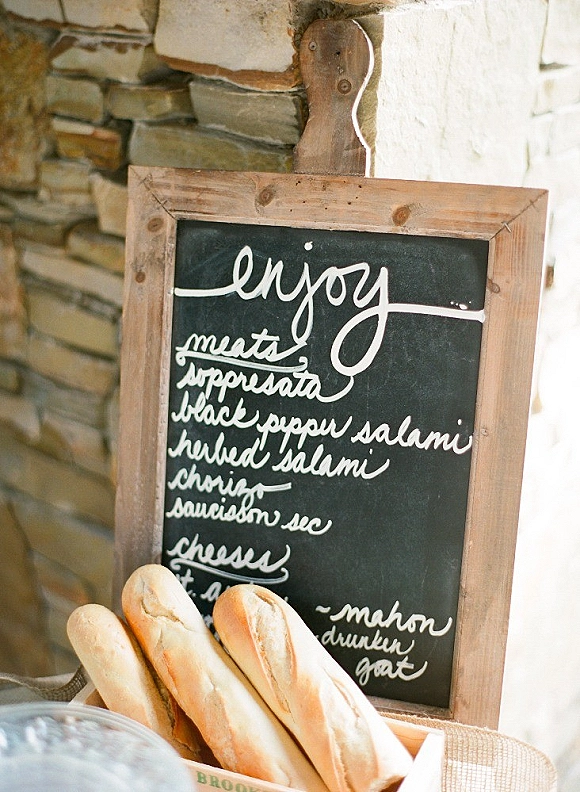 enjoy
meats
soppresata
black pepper salami
herbed salami
chorizo
saucisson sec
cheeses
~mahon
drunken
goat